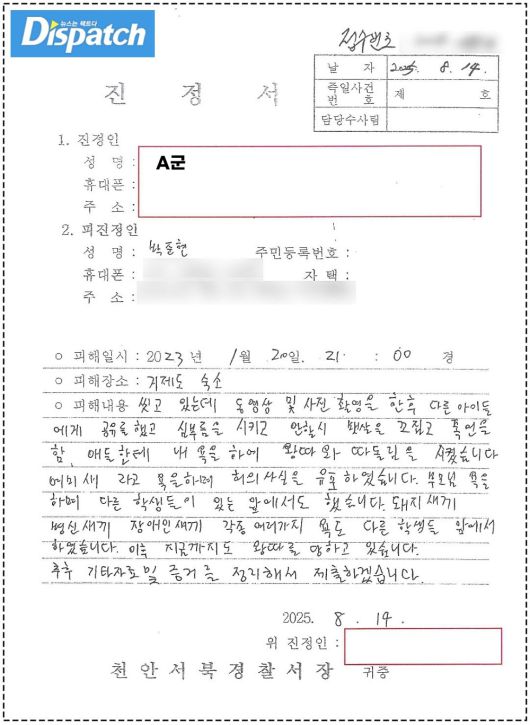 뉴스는 팩트다
Dispatch
접수번호
진 정 서
날 자 2025. 8. 14.
즉일사건번호 제 호
담당수사팀
1. 진정인
성 명 : A군
휴대폰 :
주 소 :
2. 피진정인
성 명 : 박준현 주민등록번호 :
휴대폰 : 자 택 :
주 소 :
○ 피해일시 : 2023 년 1월 20일. 21 : 00 경
○ 피해장소 : 거제도 숙소
○ 피해내용 씻고 있는데 동영상 및 사진 촬영을 한후 다른아이들
에게 공유를 했고 심부름을 시키고 안할시 멱살을 꼬집고 폭언을
함, 애들한테 내 욕을 하여 왕따와 따돌림을 시켰습니다
여미새 라고 욕을하며 허위사실을 유포하였습니다. 부모님 욕을
하며 다른 학생들이 있는 앞에서도 했습니다. 돼지새끼
병신새끼 장애인새끼 각종 여러가지 욕도 다른 학생들 앞에서
하였습니다. 이후 지금까지도 왕따를 당하고 있습니다.
추후 기타자료 및 증거를 정리해서 제출하겠습니다.
2025. 8. 14.
위 진정인 :
천안서북경찰서장 귀중